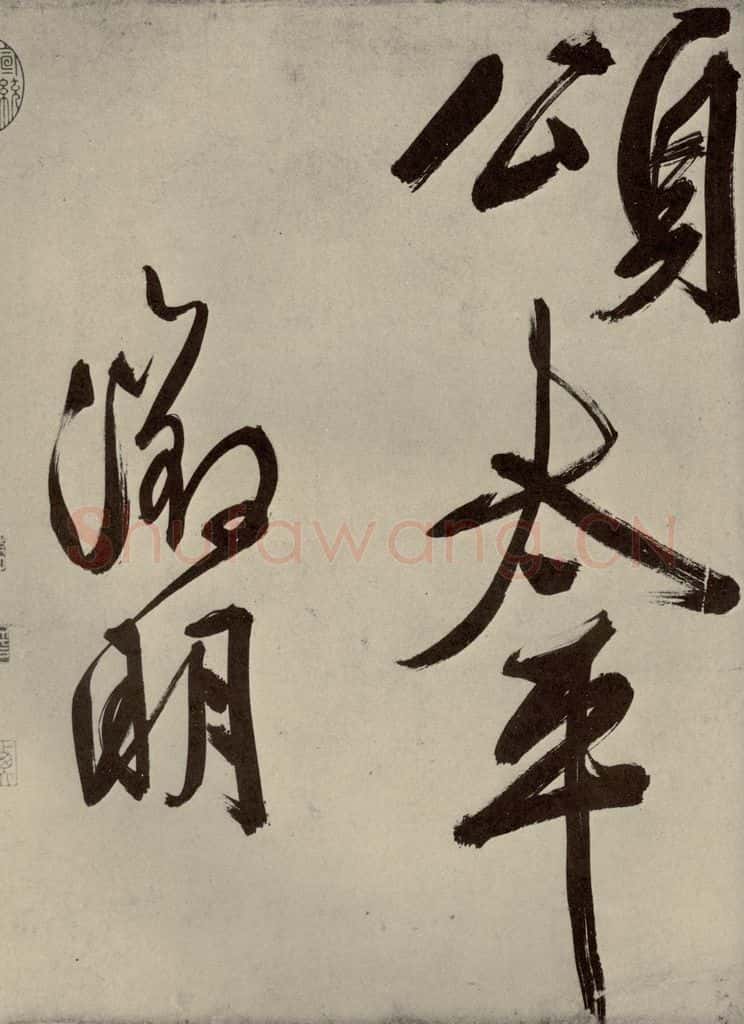 頌太平
徵明
Shufawang.CN